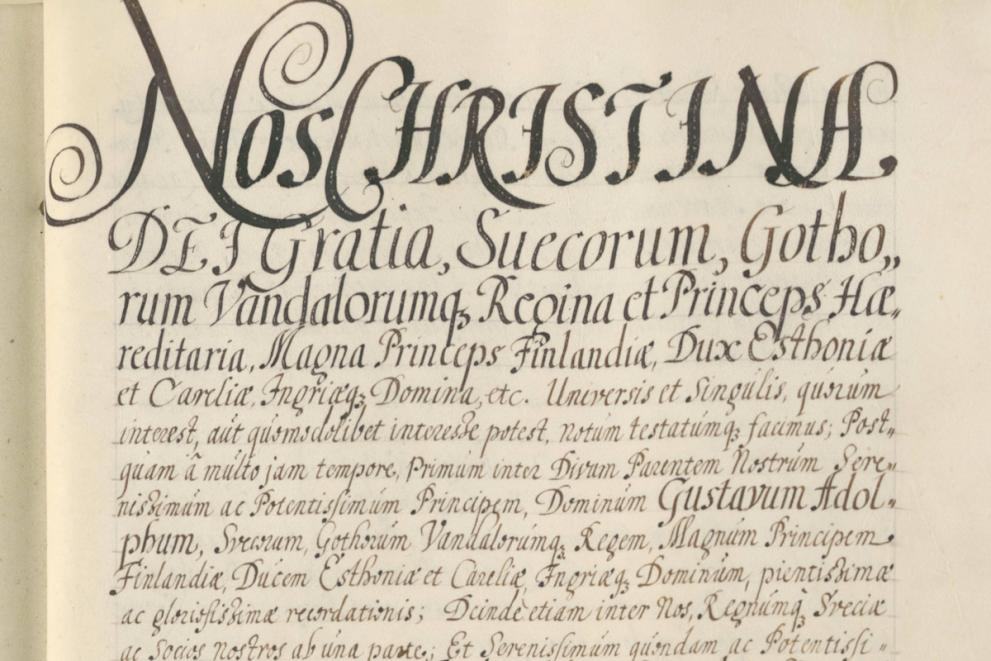 Nos CHRISTINA
DEI Gratia, Suecorum, Gotho„
rum Vandalorumq; Regina et Princeps Hæ„
reditaria, Magna Princeps Finlandiæ, Dux Esthoniæ
et Careliæ, Ingriæq; Domina, etc. Universis et Singulis, quorum
interest, aut quomodolibet interesse potest, notum testatumq; facimus; Post„
quam â multo jam tempore, primum inter Divum Parentem Nostrum Sere„
nissimum ac Potentissimum Principem, Dominum Gustavum Adol„
phum, Svecorum, Gothorum Vandalorumq; Regem, Magnum Principem
Finlandiæ, Ducem Esthoniæ et Careliæ, Ingriæq; Dominum, pientissimæ
ac gloriosissimæ recordationis; Deinde etiam inter Nos, Regnumq; Sveciæ
ac Socios nostros ab una parte; Et Serenissimum quondam ac Potentissi„